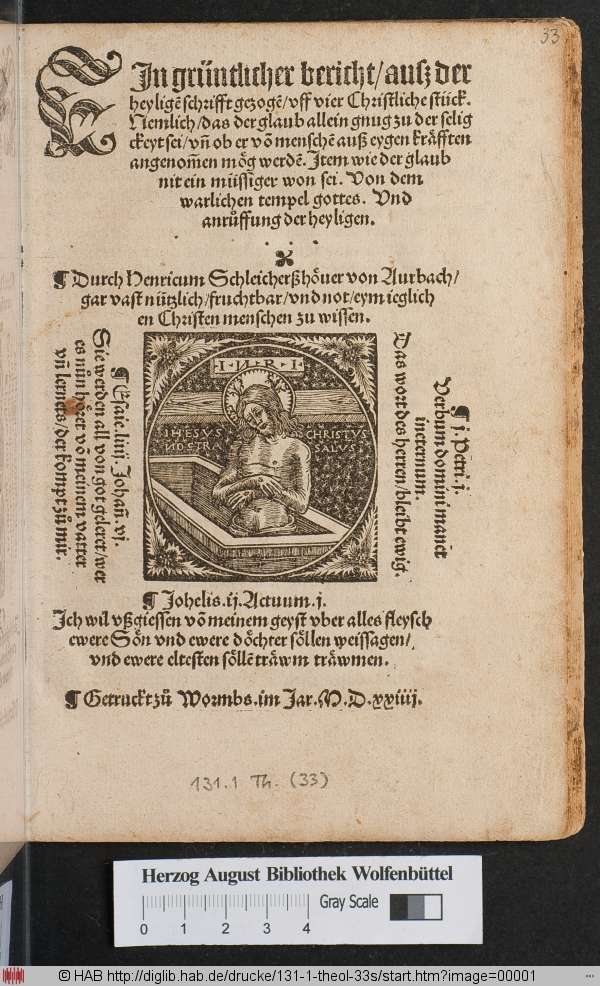 33
EJn gründtlicher bericht/ausz der
heyligē schrifft gezogē/vff vier Christliche stück.
Nemlich/das der glaub allein gnug zu der selig
ckeyt sei/vñ ob er vō menschē auß eygen kräfften
angenom̄en mög werdē. Jtem wie der glaub
nit ein müssiger won sei. Von dem
warlichen tempel gottes. Vnd
anrůffung der heyligen.
¶ Durch Henricum Schleicherßhöuer von Aurbach/
gar vast nützlich/fruchtbar/vnd not/eym ieglich
en Christen menschen zu wissen.
¶ Esaie.liiij. Johañ.vj.
Sie werden all von got geleret/wer
es nůn höret vō meinem vatter
vñ lernets/der kompt zů mir.
·I·N·R·I·
IHESVS CHRISTVS
NOSTRA SALVS
¶ j. Petri.j.
Verbum domini manēt
in eternum.
Das wort des herren/bleibt ewig.
¶ Johelis.ij. Actuum.j.
Jch wil vßgiessen vō meinem geyst vber alles fleysch
ewere Sön vnd ewere döchter söllen weissagen/
vnd ewere eltesten söllē träwm träwmen.
¶ Getruckt zů Wormbs.im Jar.M.D.xxiiij.
131.1 Th. (33)
Herzog August Bibliothek Wolfenbüttel
0 1 2 3 4 Gray Scale
© HAB http://diglib.hab.de/drucke/131-1-theol-33s/start.htm?image=00001